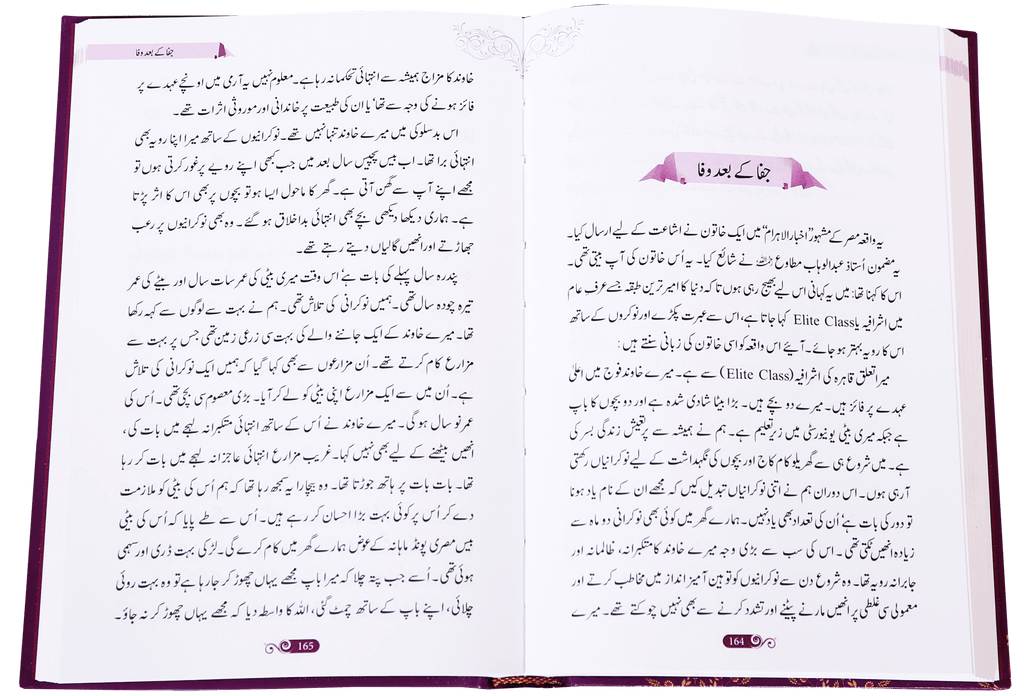 جفا کے بعد وفا
یہ واقعہ مصر کے مشہور ”اخبار الاہرام“ میں ایک خاتون نے اشاعت کے لیے ارسال کیا۔
یہ مضمون اُستاذ عبدالوہاب مطاوع رحمہ اللہ نے شائع کیا۔ یہ اُس خاتون کی آپ بیتی تھی۔
اس کا کہنا تھا: میں یہ کہانی اس لیے بھیج رہی ہوں تا کہ دنیا کا امیر ترین طبقہ جسے عرفِ عام
میں اشرافیہ یا Elite Class کہا جاتا ہے، اس سے عبرت پکڑے اور نوکروں کے ساتھ
اس کا رویہ بہتر ہو جائے۔ آیئے اس واقعہ کو اسی خاتون کی زبانی سنتے ہیں:
میرا تعلق قاہرہ کی اشرافیہ (Elite Class) سے ہے۔ میرے خاوند فوج میں اعلیٰ
عہدے پر فائز ہیں۔ میرے دو بچے ہیں۔ بڑا بیٹا شادی شدہ ہے اور دو بچوں کا باپ
ہے جبکہ میری بیٹی یونیورسٹی میں زیر تعلیم ہے۔ ہم نے ہمیشہ سے پرتعیش زندگی بسر کی
ہے۔ میں شروع ہی سے گھریلو کام کاج اور بچوں کی نگہداشت کے لیے نوکرانیاں رکھتی
آ رہی ہوں۔ اس دوران ہم نے اتنی نوکرانیاں تبدیل کیں کہ مجھے ان کے نام یاد ہونا
تو دور کی بات ہے‘ اُن کی تعداد بھی یاد نہیں۔ ہمارے گھر میں کوئی بھی نوکرانی دو ماہ سے
زیادہ انھیں ٹکتی تھی۔ اس کی سب سے بڑی وجہ میرے خاوند کا متکبرانہ، ظالمانہ اور
جابرانہ رویہ تھا۔ وہ شروع دن سے نوکرانیوں کو توہین آمیز انداز میں مخاطب کرتے اور
معمولی سی غلطی پر انھیں مارنے پیٹنے اور تشدد کرنے سے بھی نہیں چوکتے تھے۔ میرے
164
جفا کے بعد وفا
خاوند کا مزاج ہمیشہ سے انتہائی تحکمانہ رہا ہے۔ معلوم نہیں یہ آرمی میں اونچے عہدے پر
فائز ہونے کی وجہ سے تھا‘ یا ان کی طبیعت پر خاندانی اور موروثی اثرات تھے۔
اس بدسلوکی میں میرے خاوند تنہا نہیں تھے۔ نوکرانیوں کے ساتھ میرا اپنا رویہ بھی
انتہائی برا تھا۔ اب بیس پچیس سال بعد میں جب کبھی اپنے رویے پر غور کرتی ہوں تو
مجھے اپنے آپ سے گھن آتی ہے۔ گھر کا ماحول ایسا ہو تو بچوں پر بھی اس کا اثر پڑتا
ہے۔ ہماری دیکھا دیکھی بچے بھی انتہائی بداخلاق ہو گئے۔ وہ بھی نوکرانیوں پر رعب
جھاڑتے اور انھیں گالیاں دیتے رہتے تھے۔
پندرہ سال پہلے کی بات ہے‘ اس وقت میری بیٹی کی عمر سات سال اور بیٹے کی عمر
تیرہ چودہ سال تھی۔ ہمیں نوکرانی کی تلاش تھی۔ ہم نے بہت سے لوگوں سے کہہ رکھا
تھا۔ میرے خاوند کے ایک جاننے والے کی بہت سی زرعی زمین تھی جس پر بہت سے
مزارع کام کرتے تھے۔ اُن مزارعوں سے بھی کہا گیا کہ ہمیں ایک نوکرانی کی تلاش
ہے۔ اُن میں سے ایک مزارع اپنی بیٹی کو لے کر آیا۔ بڑی معصوم سی بچی تھی۔ اُس کی
عمر نو سال ہو گی۔ میرے خاوند نے اُس کے ساتھ انتہائی متکبرانہ لہجے میں بات کی،
انھیں بیٹھنے کے لیے بھی نہیں کہا۔ غریب مزارع انتہائی عاجزانہ لہجے میں بات کر رہا
تھا۔ بات بات پر ہاتھ جوڑتا تھا۔ وہ بیچارا یہ سمجھ رہا تھا کہ ہم اُس کی بیٹی کو ملازمت
دے کر اُس پر کوئی بہت بڑا احسان کر رہے ہیں۔ اُس سے طے پایا کہ اُس کی بیٹی
بیس مصری پونڈ ماہانہ کے عوض ہمارے گھر میں کام کرے گی۔ لڑکی بہت ڈری اور سہمی
ہوئی تھی۔ اُسے جب پتہ چلا کہ میرا باپ مجھے یہاں چھوڑ کر جا رہا ہے تو وہ بہت روئی
چلائی، اپنے باپ کے ساتھ چمٹ گئی، اللہ کا واسطہ دیا کہ مجھے یہاں چھوڑ کر نہ جاؤ۔
165